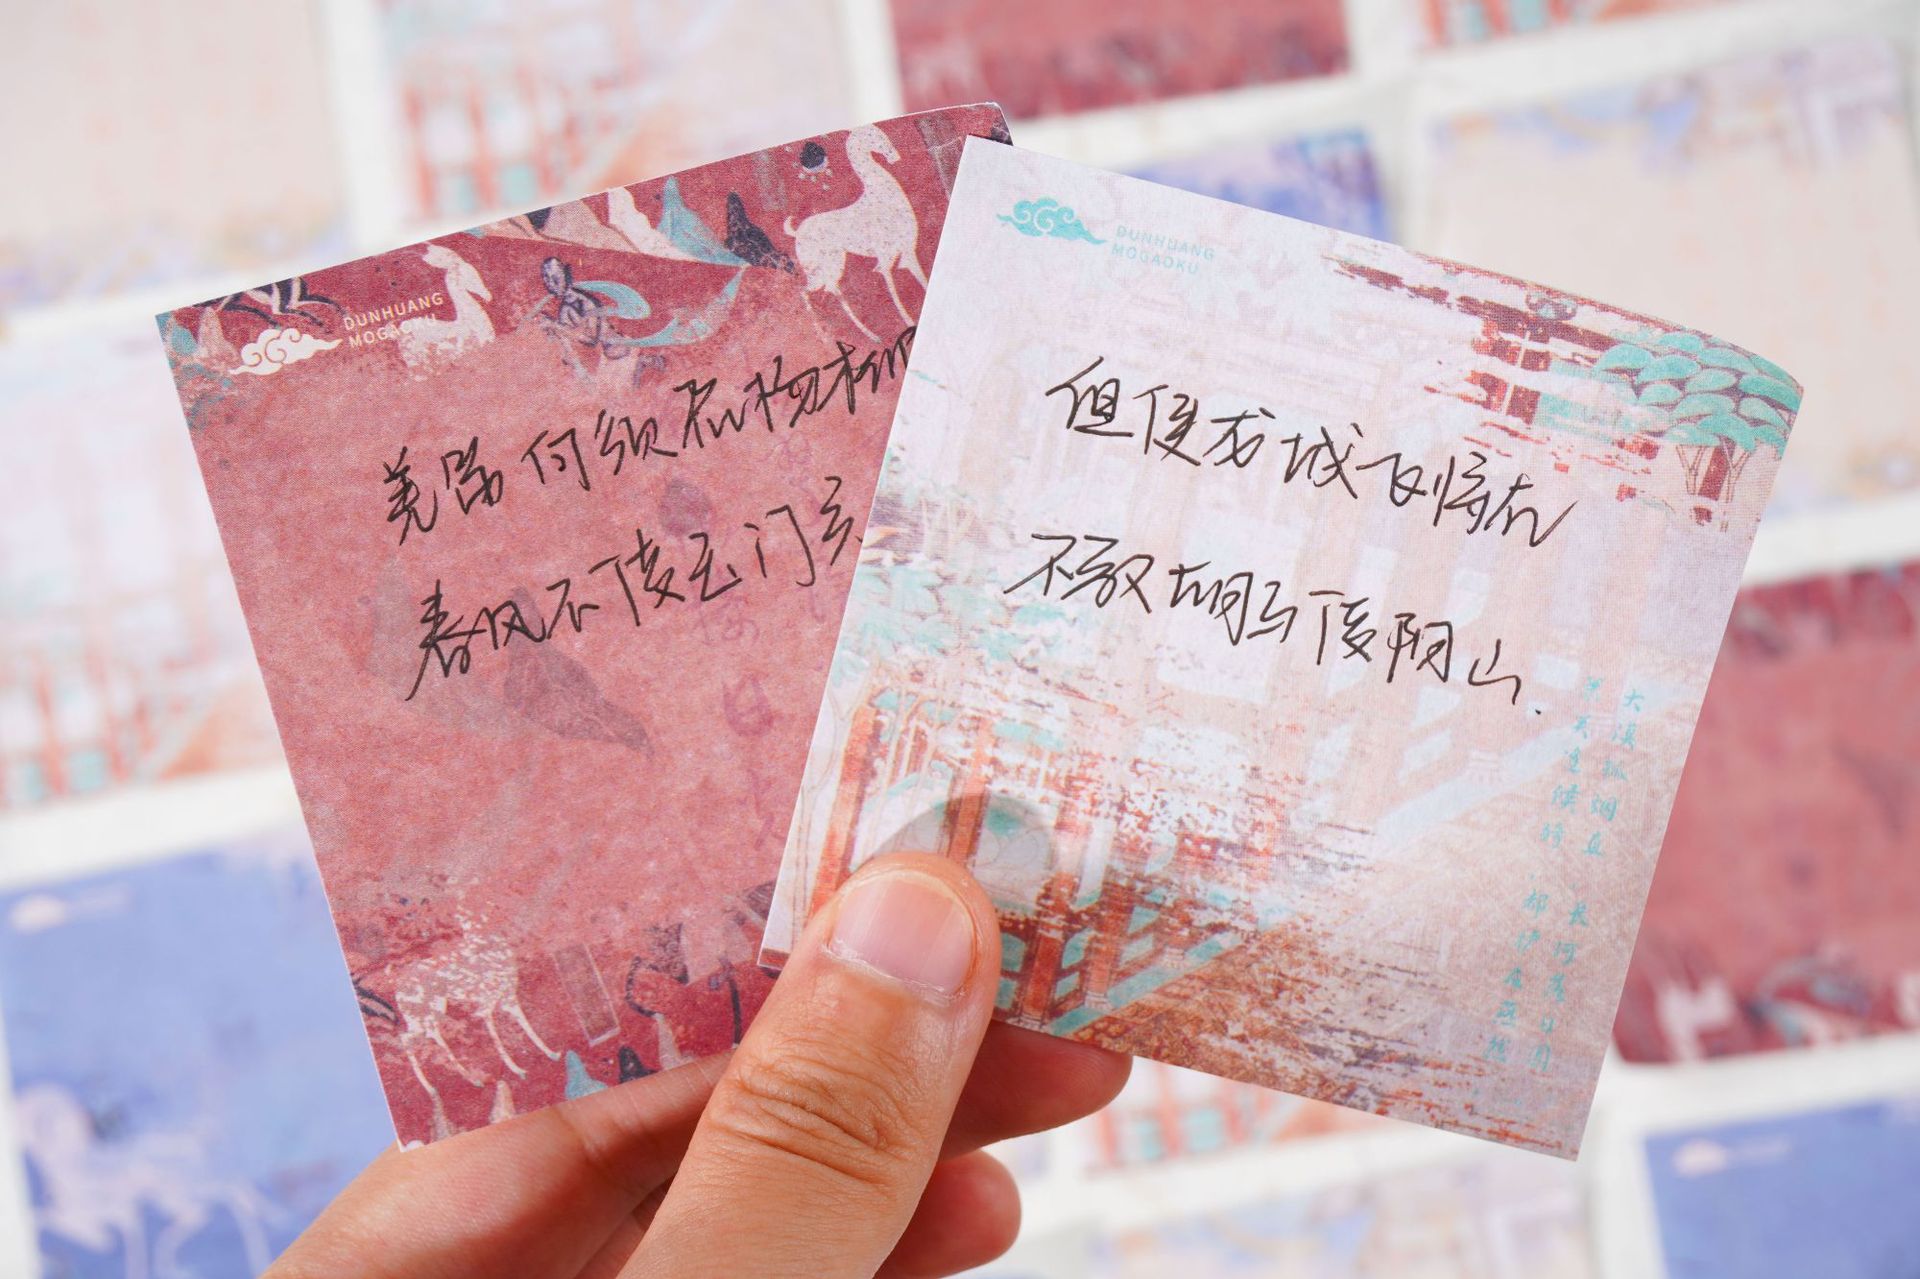 DUNHUANG
MOGAOKU
羌笛何须怨杨柳
春风不度玉门关
DUNHUANG
MOGAOKU
但使龙城飞将在
不教胡马度阴山.
大漠孤烟直，长河落日圆
萧关逢候骑，都护在燕然